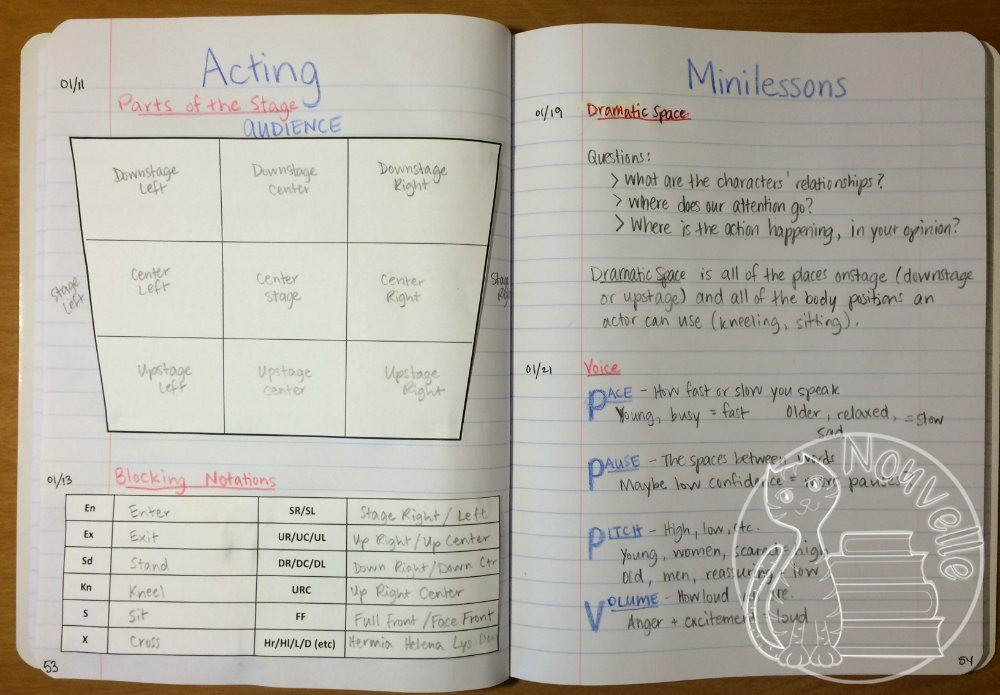 Acting
01/11
Parts of the Stage
AUDIENCE
Downstage Left
Downstage Center
Downstage Right
Stage Left
Center Left
Center Stage
Center Right
Stage
Upstage Left
Upstage Center
Upstage Right
01/13
Blocking Notations
En Enter SR/SL Stage Right / Left
Ex Exit UR/UC/UL Up Right/Up Center
Sd Stand DR/DC/DL Down Right/Down Ctr
Kn Kneel URC Up Right Center
S Sit FF Full Front / Face Front
X Cross Hr/Hl/L/D (etc) Hermia Helena Lys
53
Minilessons
01/19 Dramatic Space
Questions:
> What are the characters' relationships?
> Where does our attention go?
> Where is the action happening, in your opinion?
Dramatic Space is all of the places onstage (downstage
or upstage) and all of the body positions an
actor can use (kneeling, sitting).
01/21 Voice
PACE - How fast or slow you speak
Young, busy = fast Older, relaxed, = slow
sad
PAUSE - The spaces between words
Maybe low confidence = more pauses
PITCH - High, low, etc.
Young, women, scared = high
Old, men, reassuring = low
VOLUME - How loud
Anger + excitement = loud
54
Nouvelle